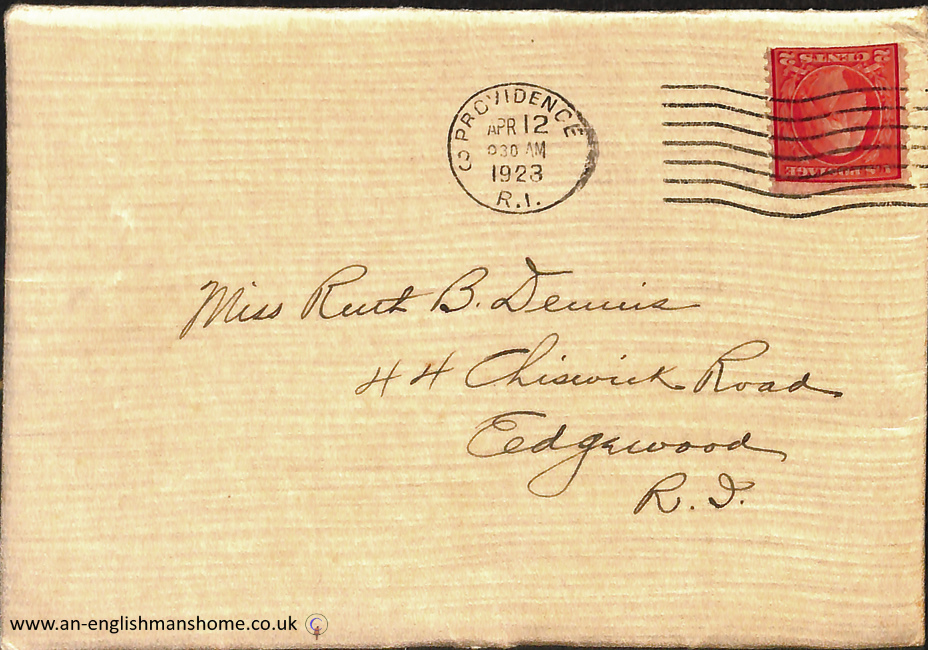 3 PROVIDENCE
APR 12
930 AM
1923
R.I.
2 CENTS 2
U.S. POSTAGE
Miss Ruth B. Dennis
44 Chiswick Road
Edgewood
R. I.
www.an-englishmanshome.co.uk